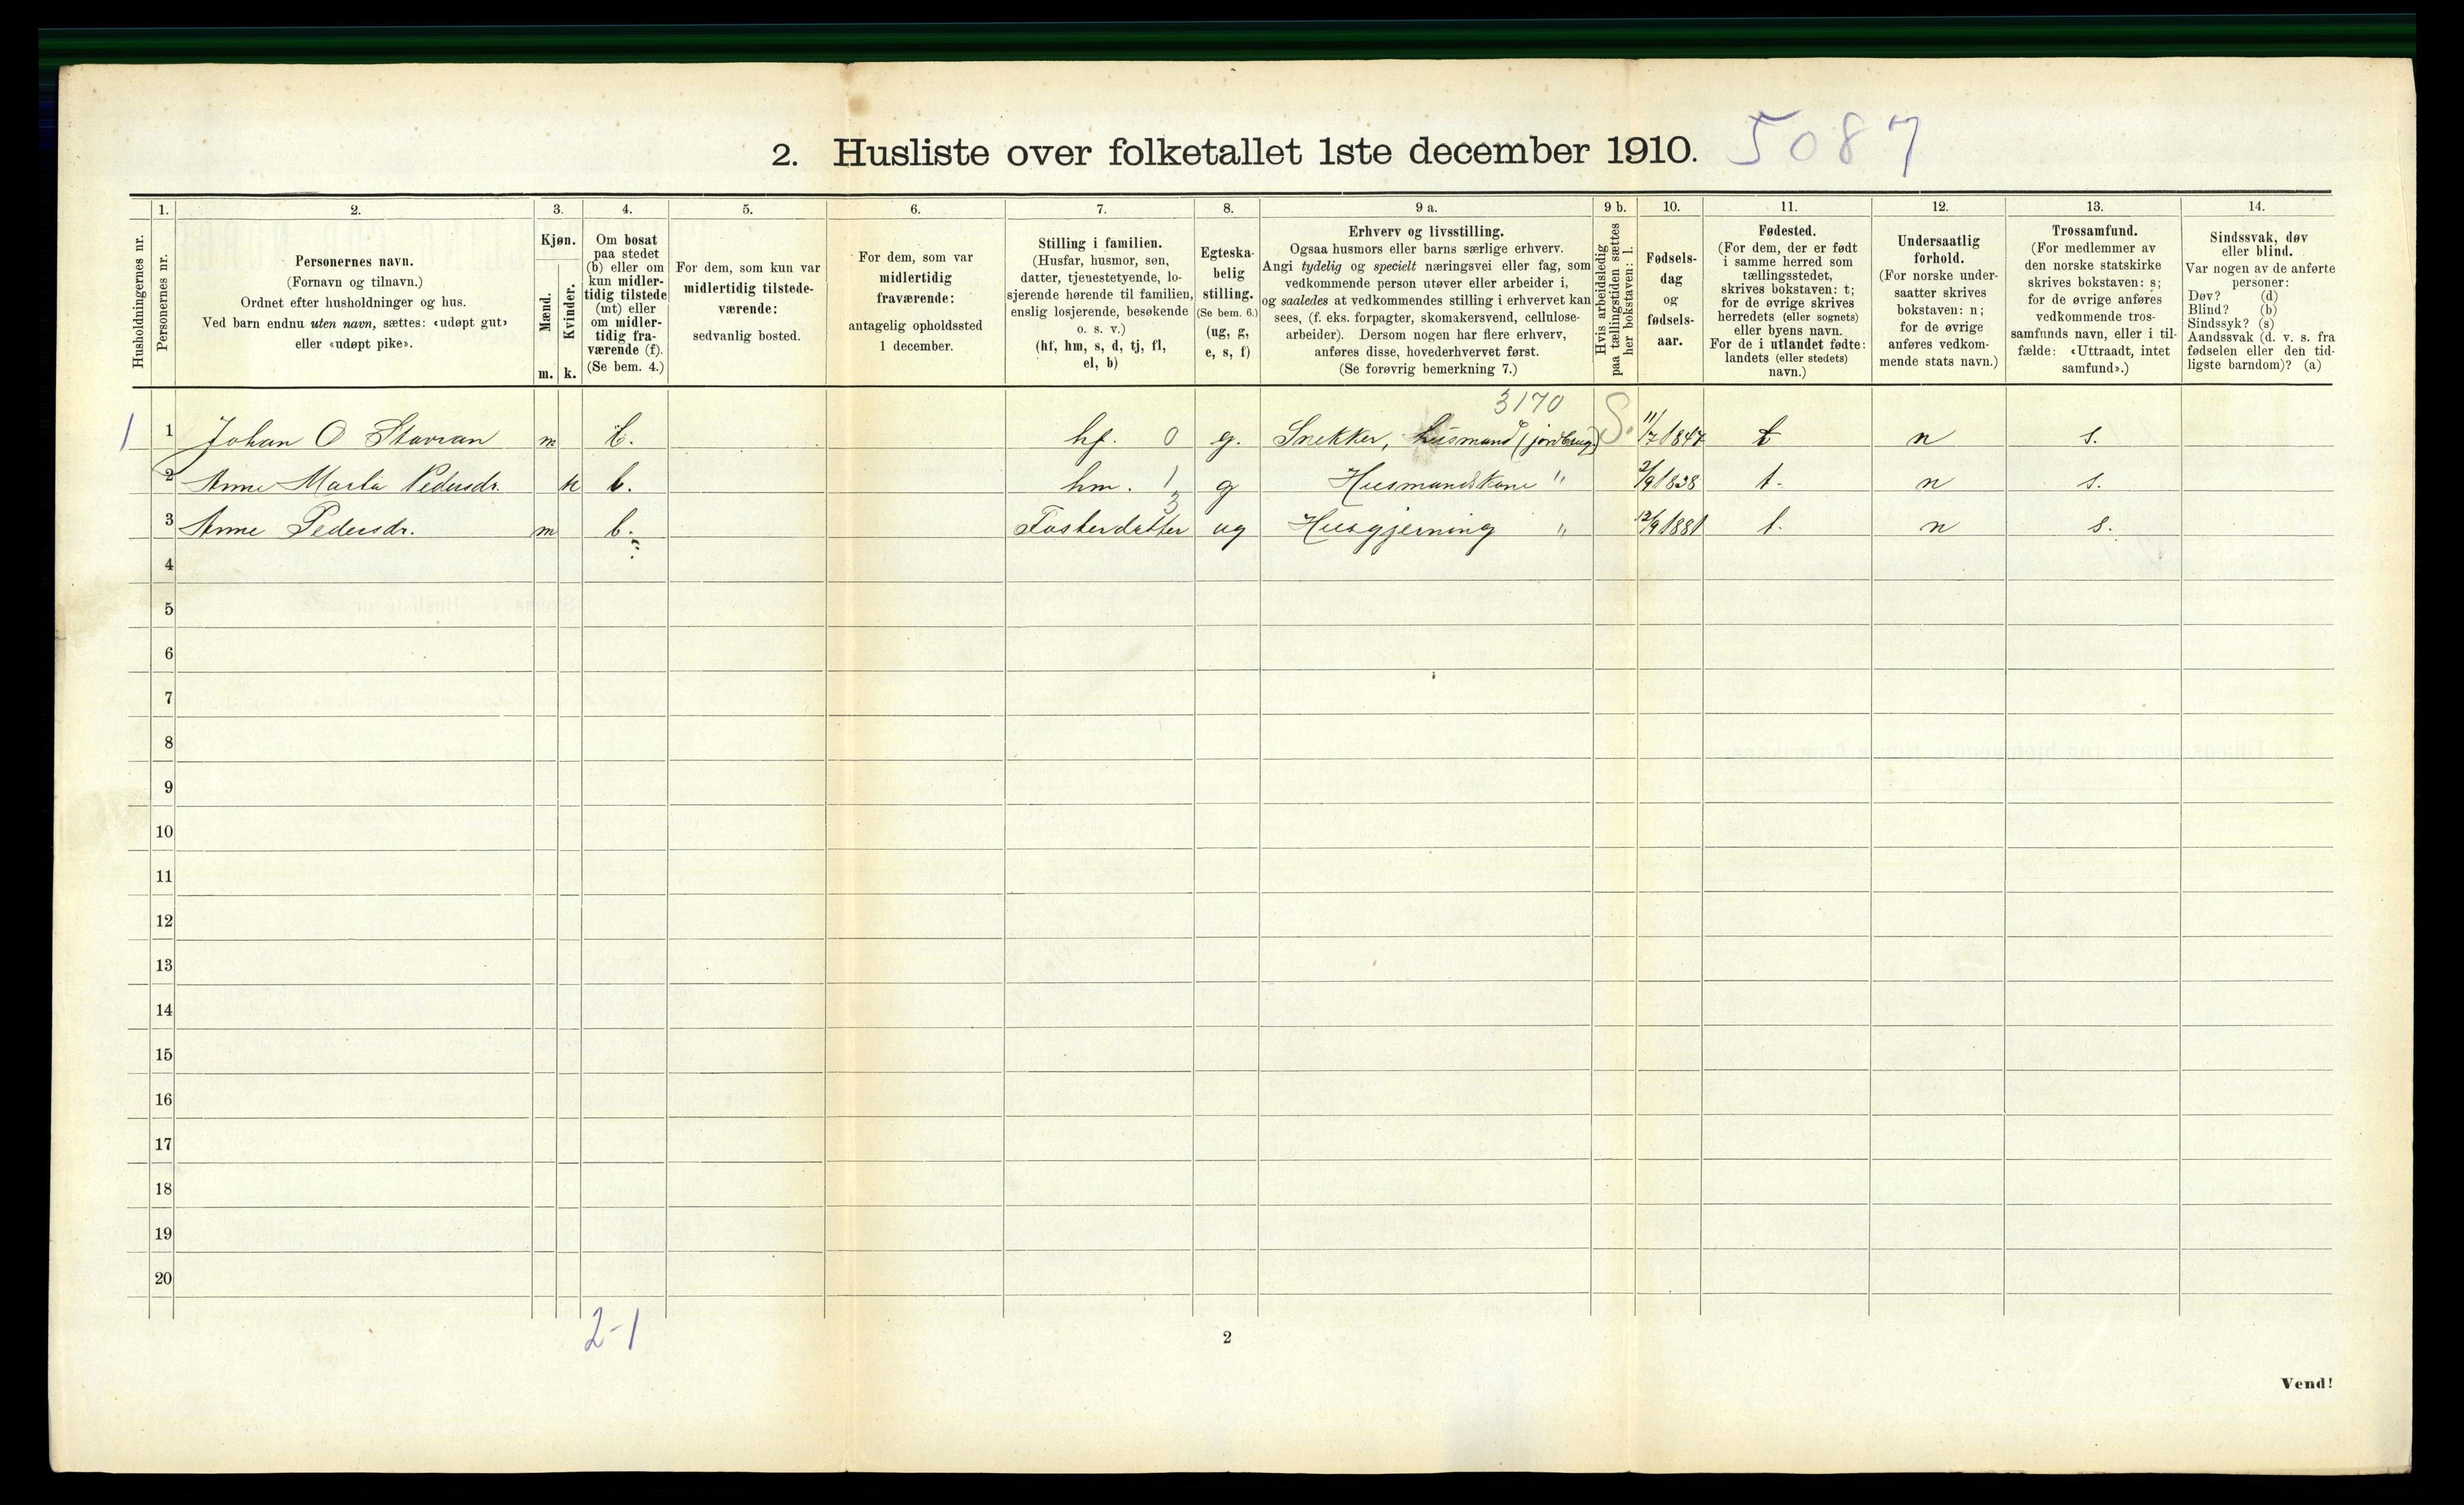 2. Husliste over folketallet 1ste december 1910. 5087
1. 2. 3. 4. 5. 6. 7. 8. 9 a. 9 b. 10. 11. 12. 13. 14.
Husholdningernes nr.
Personernes nr.
Personernes navn.
(Fornavn og tilnavn.)
Ordnet efter husholdninger og hus.
Ved barn endnu uten navn, sættes: «udøpt gut»
eller «udøpt pike».
Kjøn.
Mænd.
Kvinder.
m. k.
Om bosat
paa stedet
(b) eller om
kun midler-
tidig tilstede
(mt) eller
om midler-
tidig fra-
værende (f).
(Se bem. 4.)
For dem, som kun var
midlertidig tilstede-
værende:
sedvanlig bosted.
For dem, som var
midlertidig
fraværende:
antagelig opholdssted
1 december.
Stilling i familien.
(Husfar, husmor, søn,
datter, tjenestetyende, lo-
sjerende hørende til familien,
enslig losjerende, besøkende
o. s. v.)
(hf, hm, s, d, tj, fl,
el, b)
Egteska-
belig
stilling.
(Se bem. 6.)
(ug, g,
e, s, f)
Erhverv og livsstilling.
Ogsaa husmors eller barns særlige erhverv.
Angi tydelig og specielt næringsvei eller fag, som
vedkommende person utøver eller arbeider i,
og saaledes at vedkommendes stilling i erhvervet kan
sees, (f. eks. forpagter, skomakersvend, cellulose-
arbeider). Dersom nogen har flere erhverv,
anføres disse, hovederhvervet først.
(Se forøvrig bemerkning 7.)
Hvis arbeidsledig
paa tællingstiden sættes
her bokstaven: l.
Fødsels-
dag
og
fødsels-
aar.
Fødested.
(For dem, der er født
i samme herred som
tællingsstedet,
skrives bokstaven: t;
for de øvrige skrives
herredets (eller sognets)
eller byens navn.
For de i utlandet fødte:
landets (eller stedets)
navn.)
Undersaatlig
forhold.
(For norske under-
saatter skrives
bokstaven: n;
for de øvrige
anføres vedkom-
mende stats navn.)
Trossamfund.
(For medlemmer av
den norske statskirke
skrives bokstaven: s;
for de øvrige anføres
vedkommende tros-
samfunds navn, eller i til-
fælde: «Uttraadt, intet
samfund».)
Sindssvak, døv
eller blind.
Var nogen av de anførte
personer:
Døv? (d)
Blind? (b)
Sindssyk? (s)
Aandssvak (d. v. s. fra
fødselen eller den tid-
ligste barndom)? (a)
3170
1 1 Johan O Stavran m b. hf. 0 g. Snekker, husmand (jordbrug) S. 11/7 1847 t n s.
2 Anne Marta Pedersdr. k b. hm. 1 g Husmandskone " 2/9 1838 t. n s.
3 Anne Pedersdr. m b. Fosterdatter 3 ug Husgjerning " 12/9 1881 t. n s.
4
5
6
7
8
9
10
11
12
13
14
15
16
17
18
19
20
2-1
2
Vend!